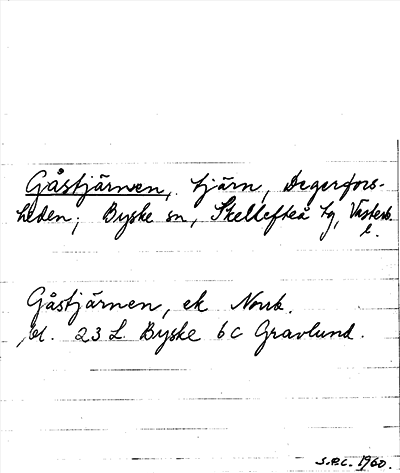 Gåstjärnen, tjärn, Degerfors-
heden; Byske sn, Skellefteå tg, Västerb.
l.
Gåstjärnen, ek Norrb.
bl. 23 L Byske 6c Gravlund.
S.P.C. 1960.